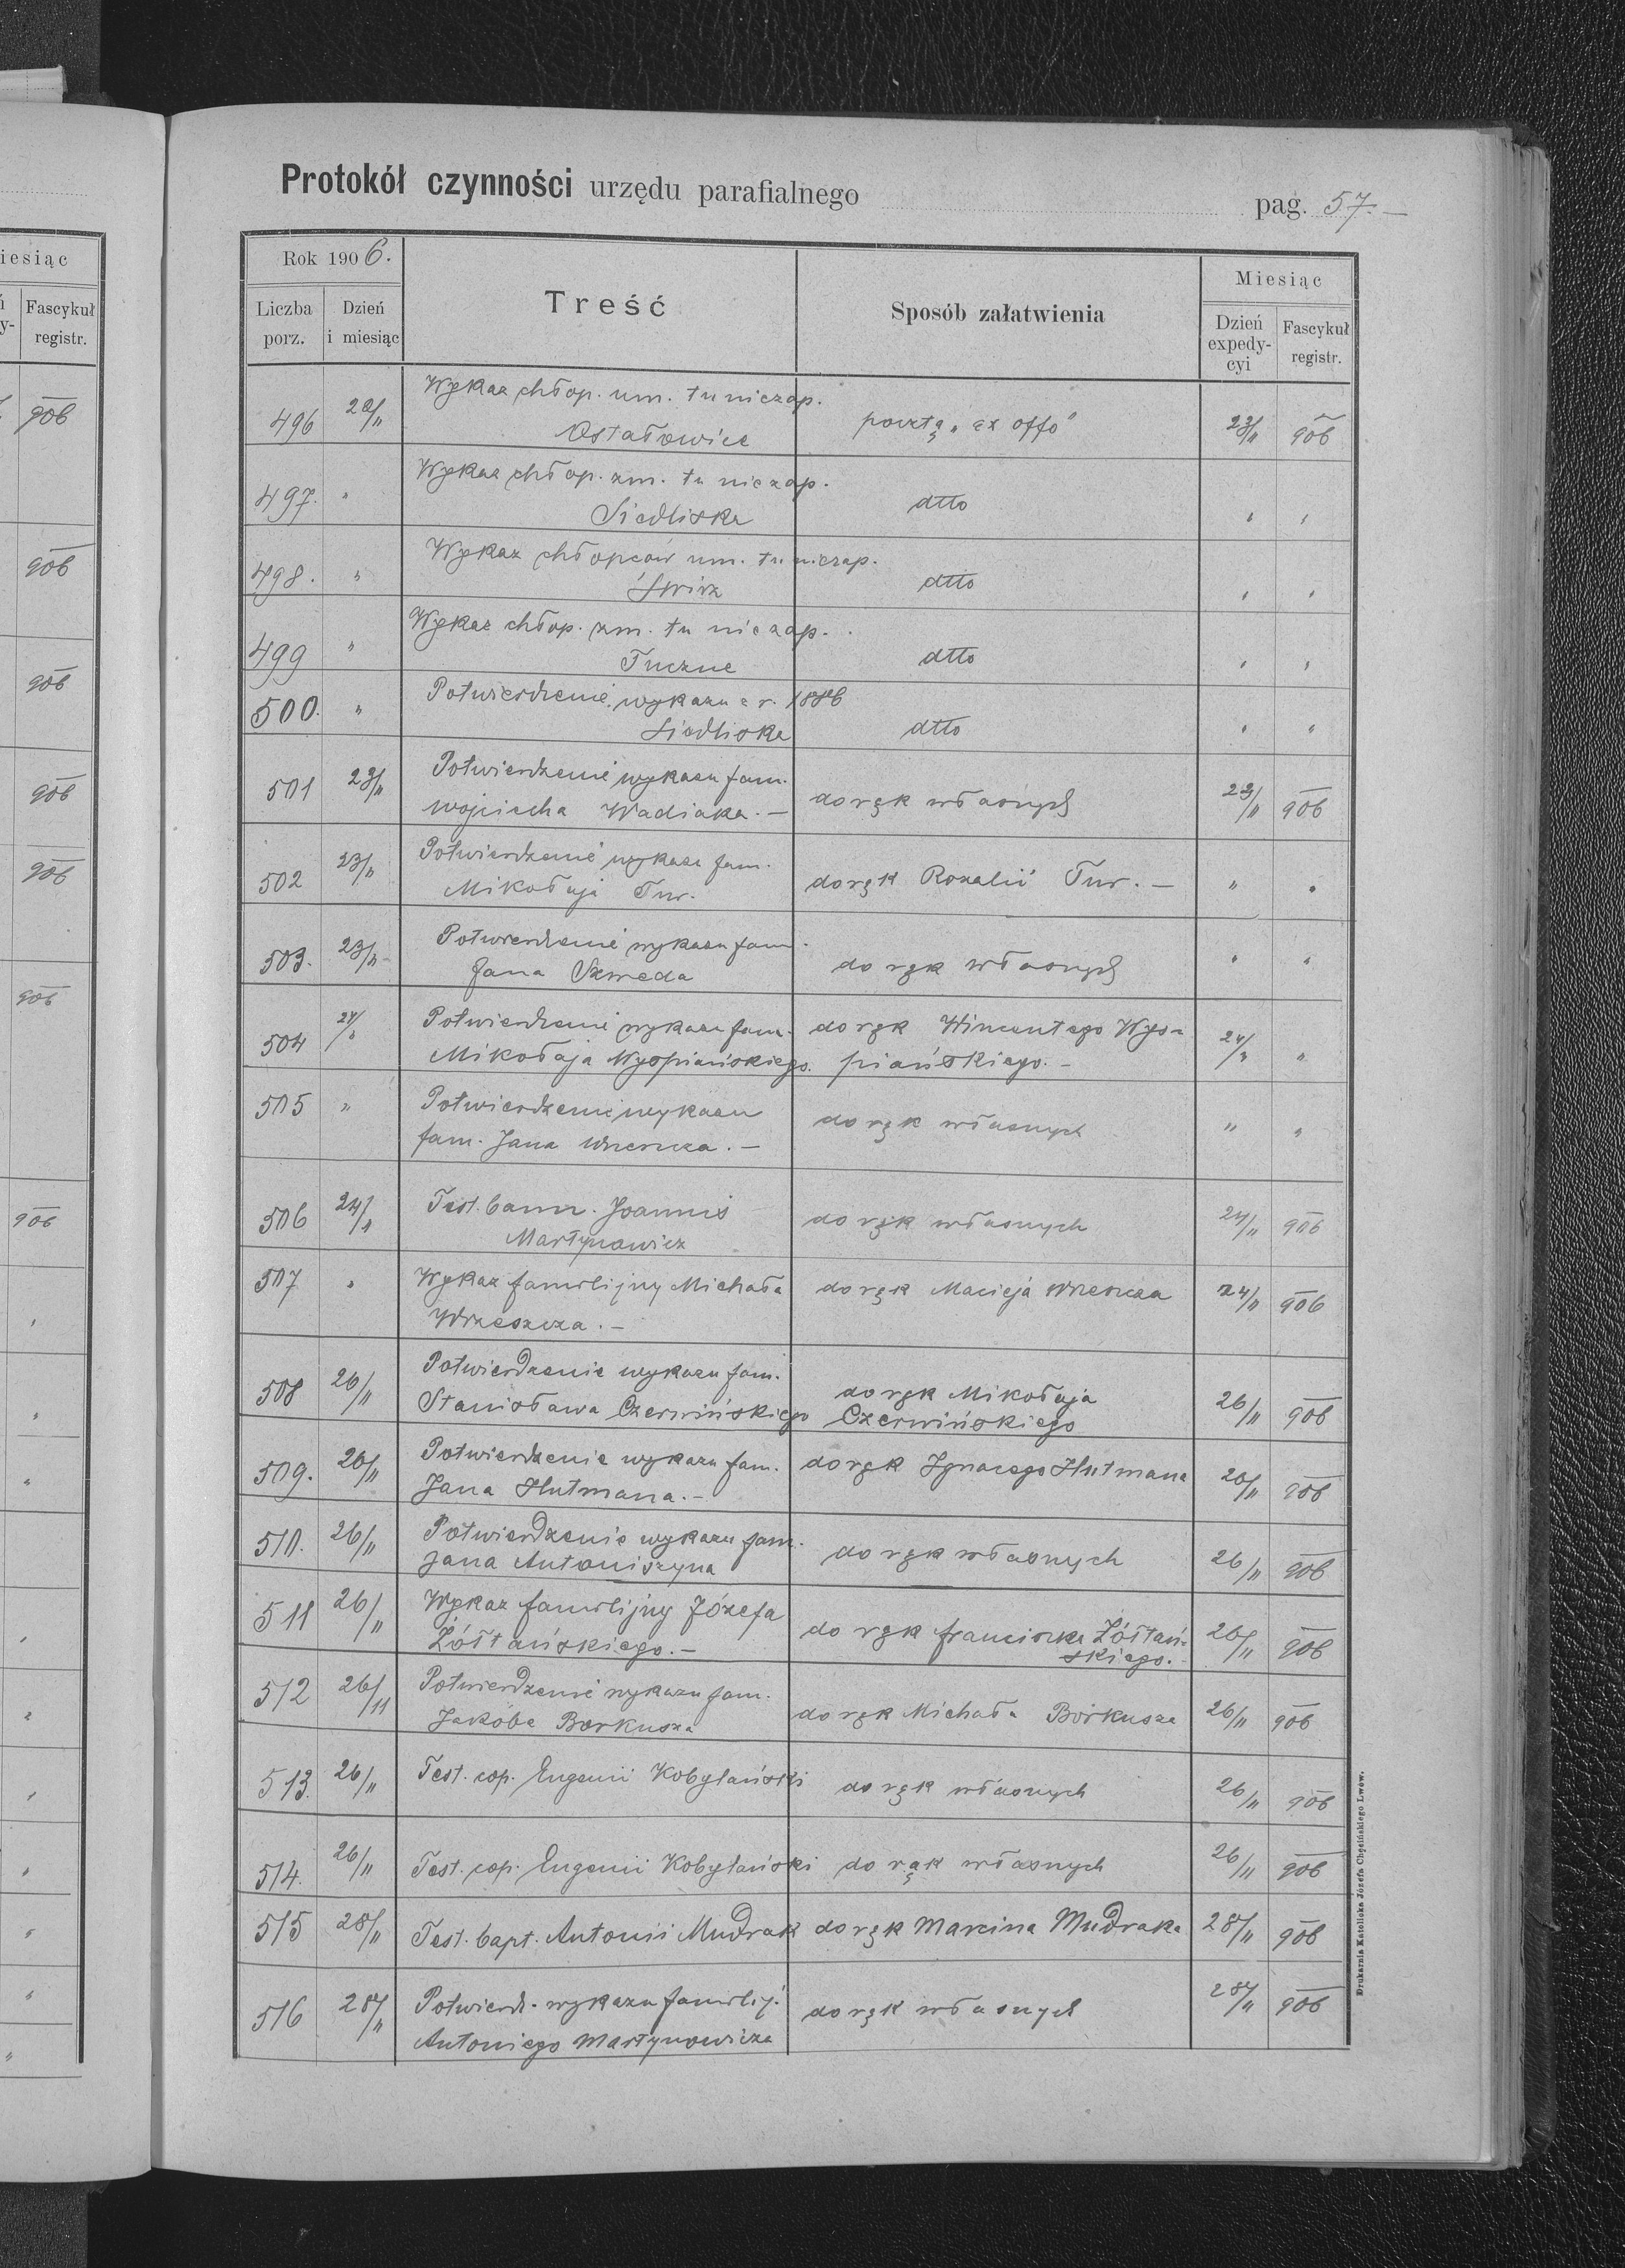 Protokół czynności urzędu parafialnego
pag. 57.—
Rok 1906.
Liczba porz.
Dzień i miesiąc
Treść
Sposób załatwienia
Miesiąc
Dzień expedycyi
Fascykuł registr.
496 Wykaz chłop. um. tu niezap. pocztą „ex offo” 23/11 906
Ostałowice
497. " Wykaz chłop. zm. tu niezap. dtto " "
Siedliska
498. " Wykaz chłopców um. tu niezap. dtto " "
Świrz
499 " Wykaz chłop. zm. tu niezap. dtto " "
Tuczne
500. " Potwierdzenie wykazu z r. 1886 dtto " "
Siedliska
501 23/11 Potwierdzenie wykazu fam. do rąk własnych 23/11 906
wojciecha Wadiaka.—
502 23/11 Potwierdzenie wykazu fam. do rąk Rozalii Tur.— " "
Mikołaja Tur.
503. 23/11 Potwierdzenie wykazu fam. do rąk własnych " "
Jana Szweda
504 24/11 Potwierdzenie wykazu fam. do rąk Wincentego Wys- 24/11 "
Mikołaja Wyspiańskiego. piańskiego.—
505 " Potwierdzenie wykazu do rąk własnych " "
fam. Jana Wrzeszcza.—
506 24/11 Test. bann. Joannis do rąk własnych 24/11 906
Martynowicz
507 " Wykaz familijny Michała do rąk Macieja Wrzeszcza 24/11 906
Wrzeszcza.—
508 26/11 Potwierdzenie wykazu fam. do rąk Mikołaja 26/11 906
Stanisława Czerwińskiego Czerwińskiego
509. 26/11 Potwierdzenie wykazu fam. do rąk Ignacego Hutmana 26/11 906
Jana Hutmana.—
510. 26/11 Potwierdzenie wykazu fam. do rąk własnych 26/11 906
Jana Antoniszyna
511 26/11 Wykaz familijny Józefa do rąk franciszka Żółtań- 26/11 906
Żółtańskiego.— skiego.
512 26/11 Potwierdzenie wykazu fam. do rąk Michała Borkusza 26/11 906
Jakóba Borkusza
513. 26/11 Test. cop. Eugenii Kobylański do rąk własnych 26/11 906
514. 26/11 Test. cop. Eugenii Kobylański do rąk własnych 26/11 906
515 28/11 Test. bapt. Antonii Mudrak do rąk Marcina Mudraka 28/11 906
516 28/11 Potwierdz. wykazu familij. do rąk własnych 28/11 906
Antoniego Martynowicza
Drukarnia Katolicka Józefa Chęcińskiego Lwów.
iesiąc
Fascykuł registr.
906
906
906
906
906
906
906